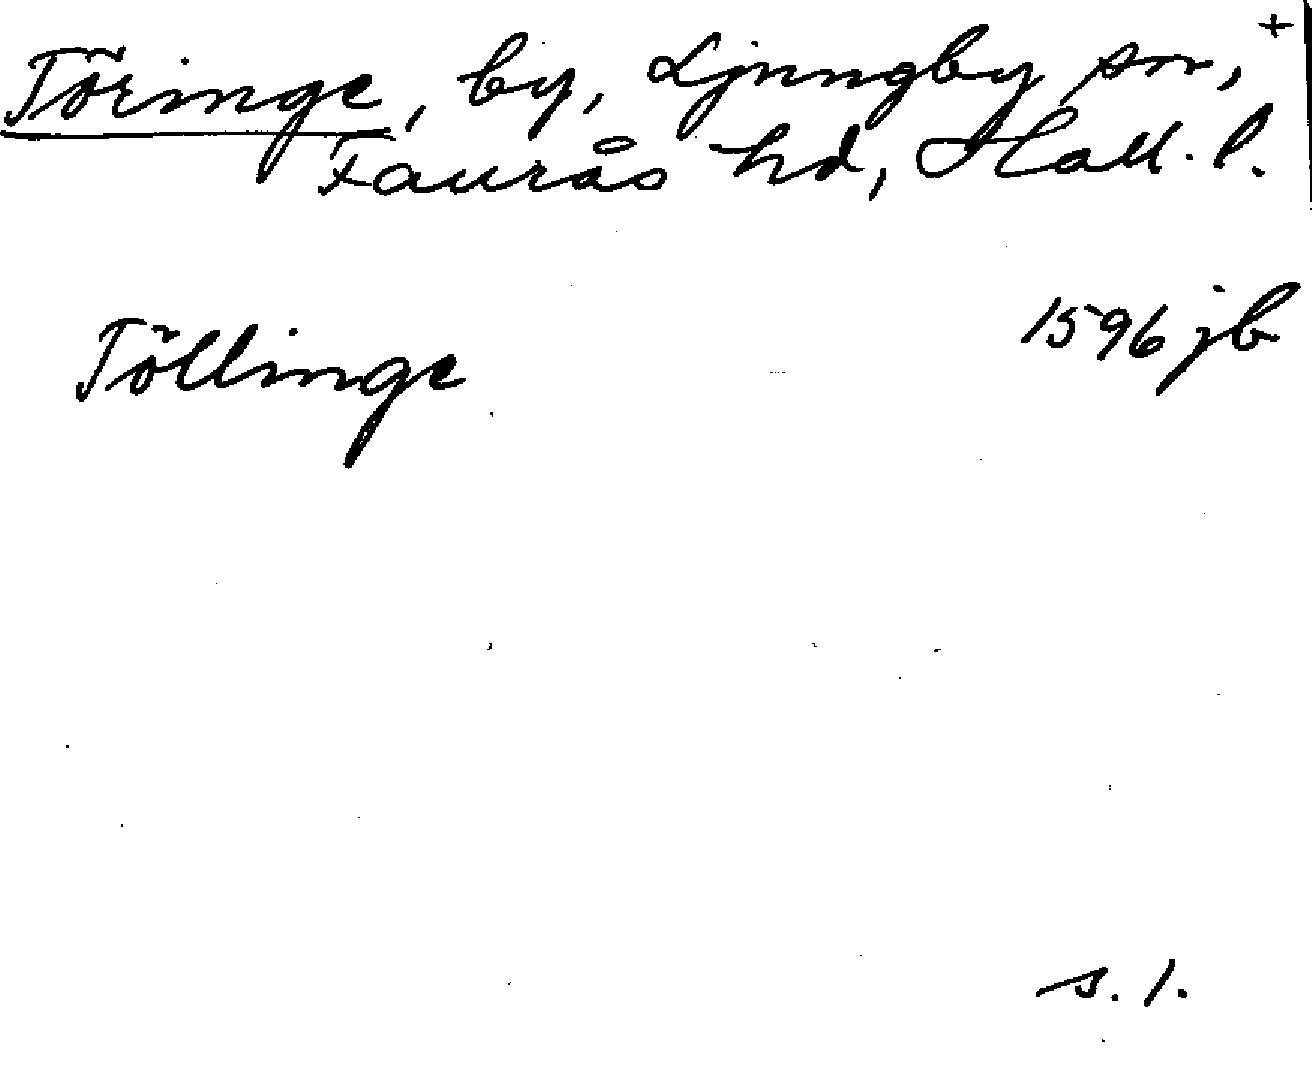 Töringe, by, Ljungby sn, +
Faurås hd, Hall. l.
Töllinge 1596 jb
s. 1.